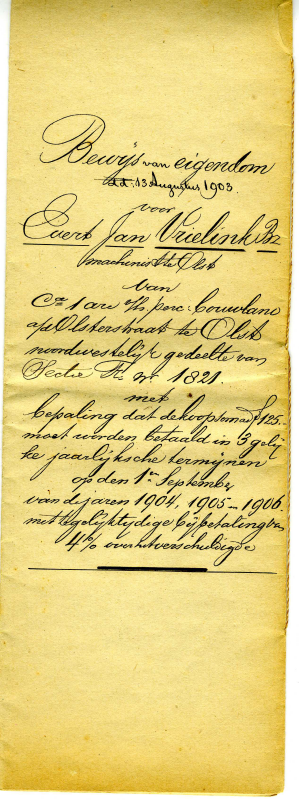 Bewijs van eigendom
dd: 13 Augustus 1903.
voor
Evert Jan Vrielink Bz
machinist te Olst
van
Ca 1 are v/h perc: bouwland
a/d Olsterstraat te Olst
noordwestelijk gedeelte van
Sectie F. no 1821.
met
bepaling dat de koopsom ad f 125.-
moet worden betaald in 3 gelij-
ke jaarlijksche termijnen
op den 1en September
van de jaren 1904, 1905 - 1906
met tegelijktijdige bijbetaling van
4% over het verschuldigde